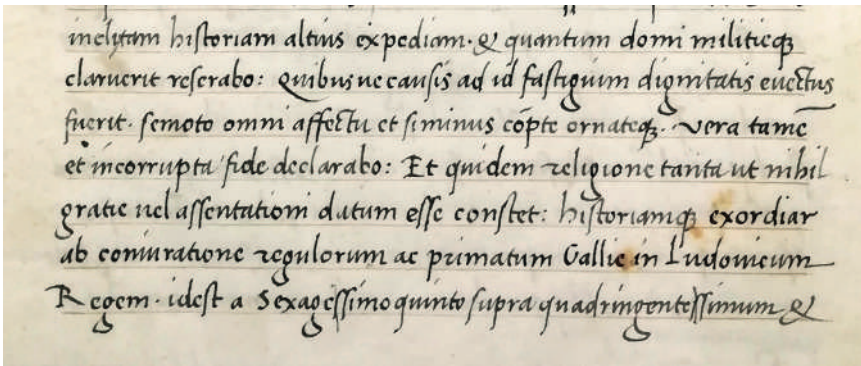 inclytam historiam altius expediam. & quantum domi militieq
claruerit reserabo: quibus ue causis ad id fastigium dignitatis euectus
fuerit. semoto omni affectu et si minus cōpte ornateq. vera tamē
et incorrupta fide declarabo: Et quidem religione tanta ut nihil
gratie uel assentationi datum esse constet: historiamq exordiar
ab coniuratione regulorum ac primatum Gallie in Ludouicum
Regem. idest a Sexagessimoquinto supra quadringentessimum &